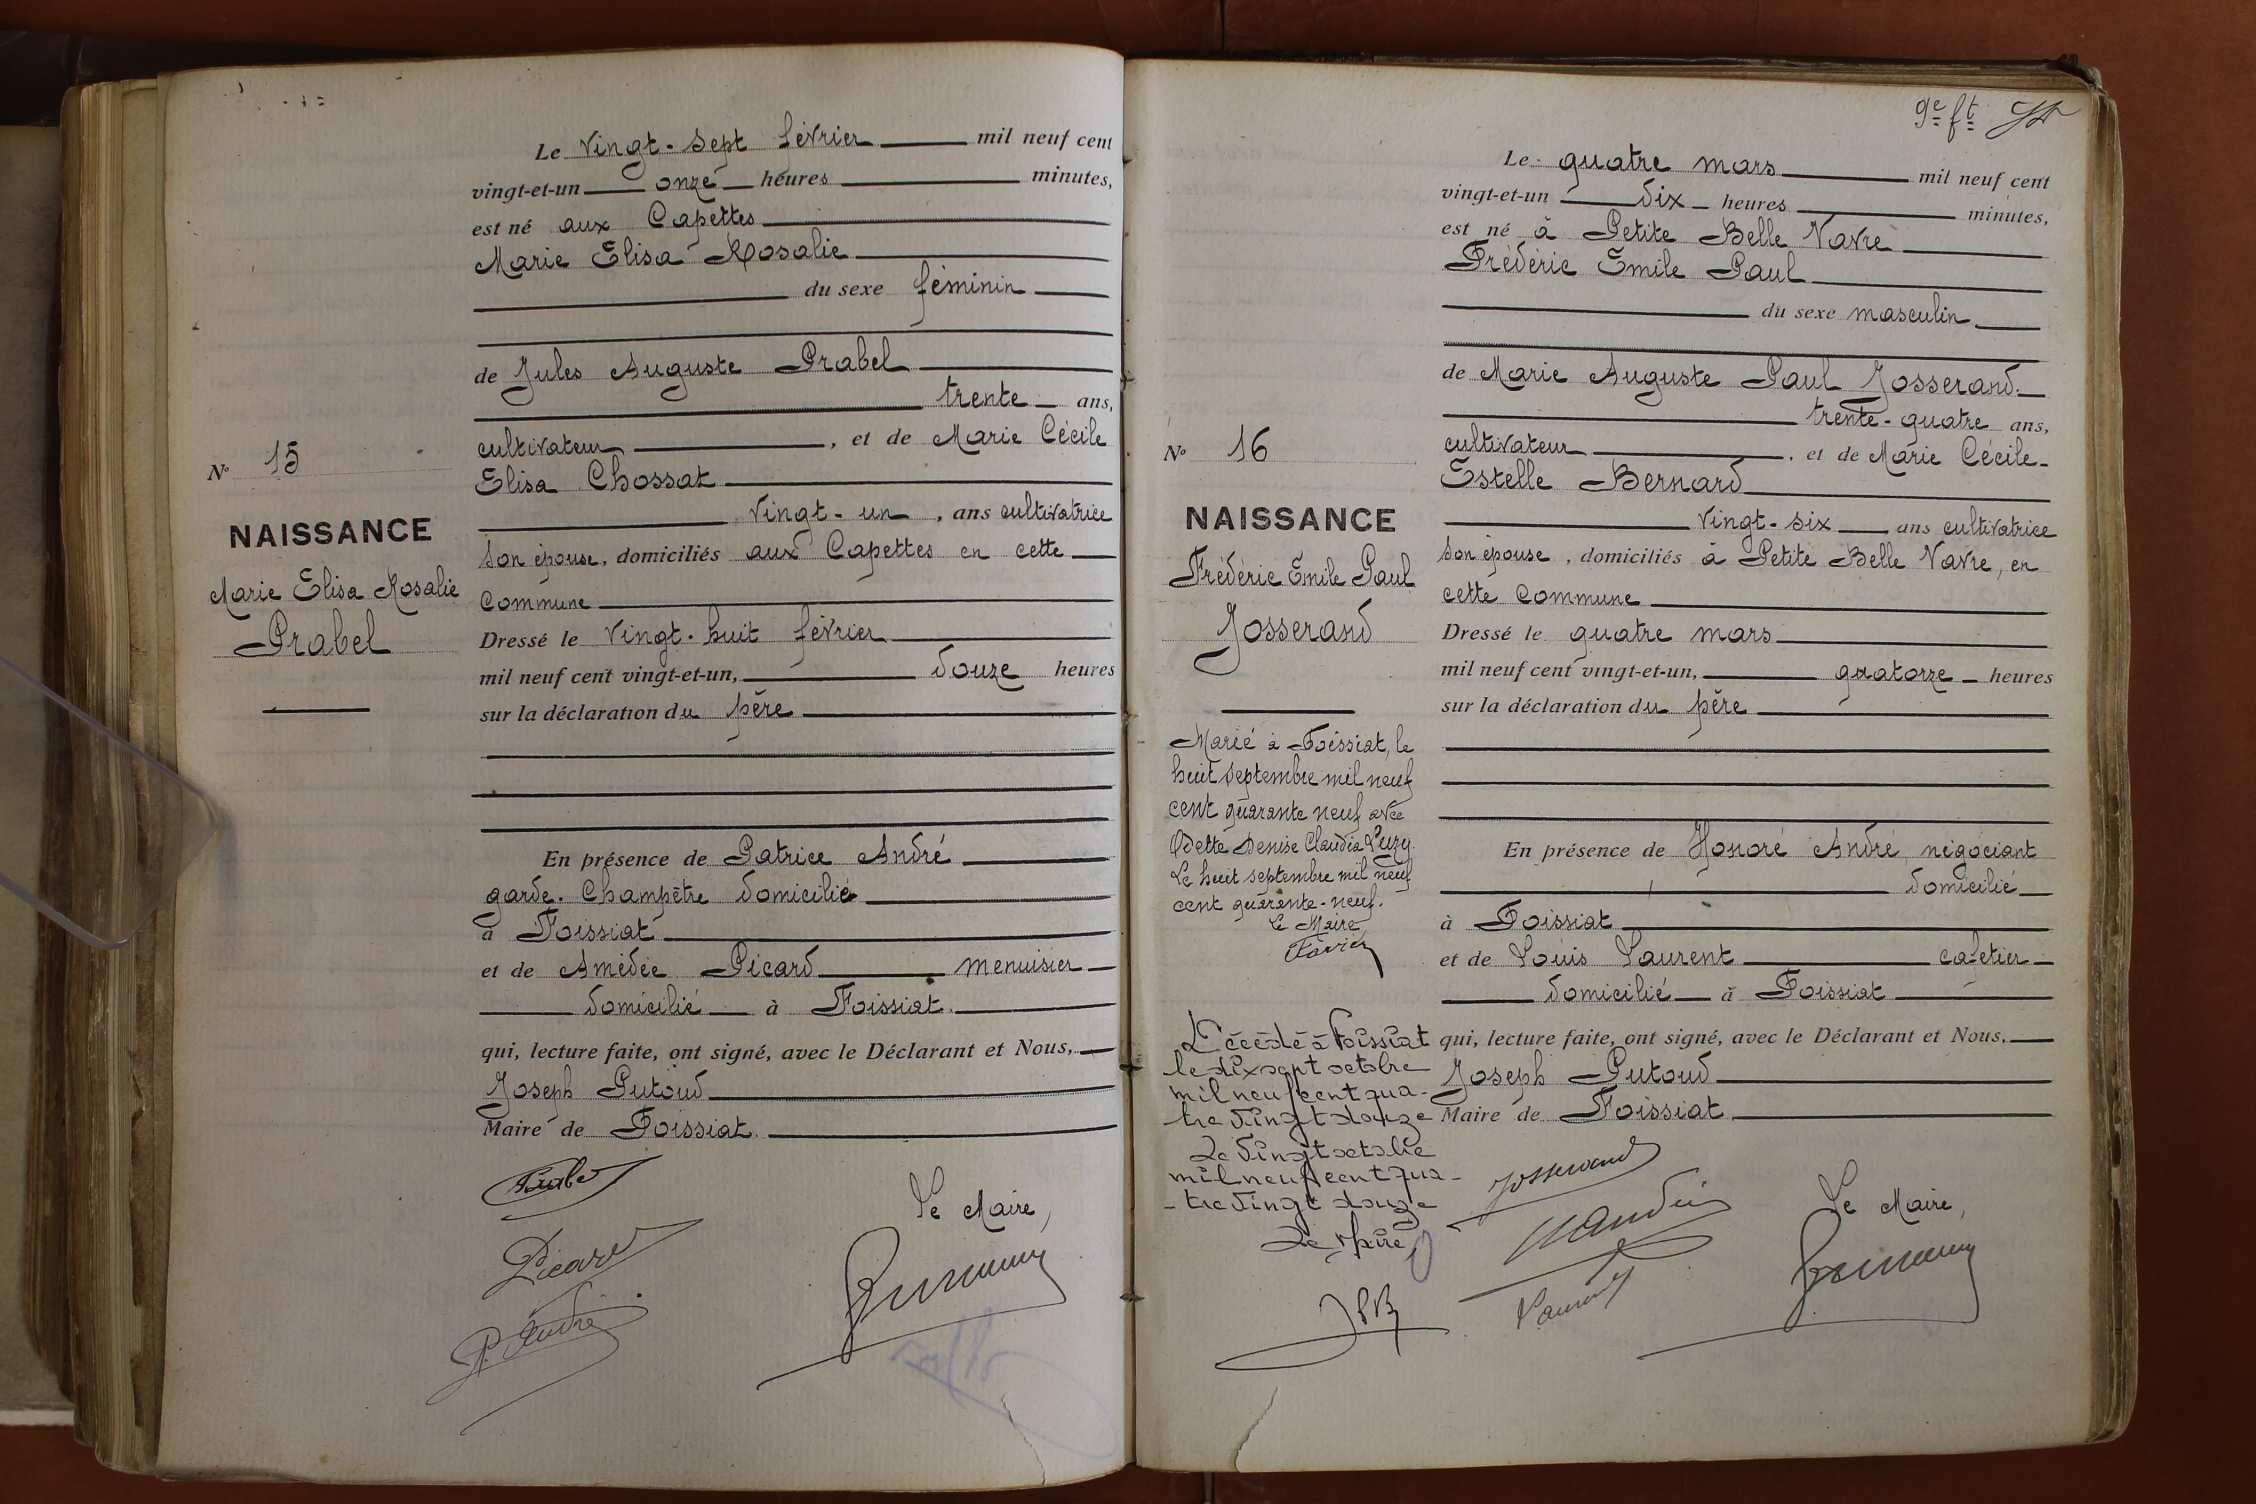 Le vingt-sept février mil neuf cent
vingt-et-un onze heures minutes,
est né aux Capettes
Marie Elisa Rosalie
du sexe féminin
de Jules Auguste Prabel
trente ans,
cultivateur, et de Marie Cécile
Elisa Chossat
vingt-un, ans cultivatrice
son épouse, domiciliés aux Capettes en cette
Commune
Dressé le vingt-huit février
mil neuf cent vingt-et-un, douze heures
sur la déclaration du père
En présence de Patrice André
garde-Champêtre domicilié
à Foissiat
et de Amédée Picard menuisier
domicilié à Foissiat.
qui, lecture faite, ont signé, avec le Déclarant et Nous,
Joseph Putoud
Maire de Foissiat
Le Maire,
Picard
P. André
N° 15
NAISSANCE
Marie Elisa Rosalie
Prabel
9e ft
Le quatre mars mil neuf cent
vingt-et-un dix heures minutes,
est né à Petite Belle Vavre
Frédéric Emile Paul
du sexe masculin
de Marie Auguste Paul Josserand.
trente-quatre ans,
cultivateur, et de Marie Cécile
Estelle Bernard
vingt-six ans cultivatrice
son épouse, domiciliés à Petite Belle Vavre, en
cette Commune
Dressé le quatre mars
mil neuf cent vingt-et-un, quatorze heures
sur la déclaration du père
En présence de Honoré André, négociant
domicilié
à Foissiat
et de Louis Laurent cafetier
domicilié à Foissiat
qui, lecture faite, ont signé, avec le Déclarant et Nous,
Joseph Putoud
Maire de Foissiat
Josserand
Le Maire,
Laurent
N° 16
NAISSANCE
Frédéric Emile Paul
Josserand
Marié à Foissiat, le
huit septembre mil neuf
cent quarante neuf avec
Odette Denise Claudia Luzy.
Le huit septembre mil neuf
cent quarante-neuf.
Le Maire
Décédé à Foissiat
le dix sept octobre
mil neuf cent qua-
tre vingt douze
Le vingt octobre
mil neuf cent qua-
-tre vingt douze
Le Maire